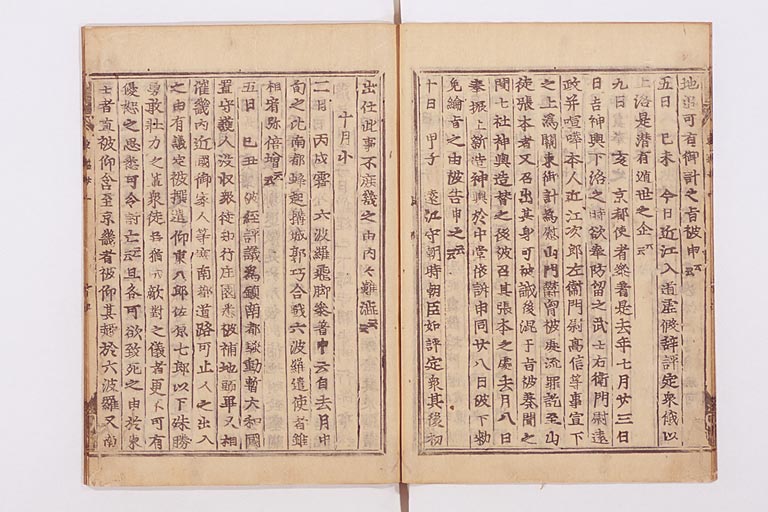 地出可有御計之旨被申云云
五日 己未 今日近江入道虚假辞評定衆俄以
上洛是潜有遁世之企云云
九日 亥 京都使者参着是去年七月廿三日
日吉神輿下洛之時欲奉防留之武士右衛門尉遠
政并喧嘩本人近江次郎左衛門尉高信等事宣下
之上為關東術計為慰山門欝曽被處流罪訖至山
徒張本者又召出其身可被誡後混于旨被奏聞之
間七社神輿造替之後被召其張本之處去月八日
奉振上新造神輿於中堂依訴申同廿八日被下勅
免綸旨之由被告申之云云
十日 甲子 遠江守朝時朝臣加評定衆其後初
出仕此事不庶幾之由内々難澁云云
十月小
二日 丙戌 霽 六波羅飛脚参着申云自去月中
旬之比南都蜂起搆城郭巧合戦六波羅遣使者雖
相宥弥倍増云云
五日 己丑 被經評議為鎮南都騒動暫大和國
置守護人没収衆徒知行庄園悉被補地頭畢又相
催畿内近國御家人等塞南都道路可止人之出入
之由有議定被撰遣仰東八郎佐原七郎以下殊勝
勇敢壮力之輩衆徒若猶成敵對之儀者更不可有
優恕之思悉可令討亡云云且各可欲致死之由於東
士者直被仰含至京畿者被仰其趣於六波羅又南